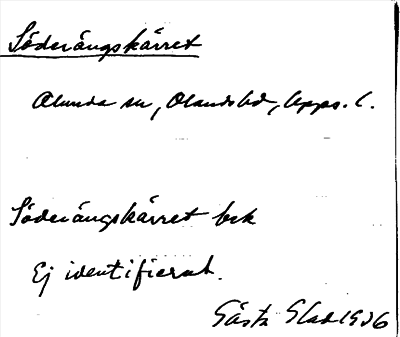 Söderängskärret
Alunda sn, Olands hd, Upps. l.
Söderängskärret bek
Ej identifierat.
Gösta Blad 1936